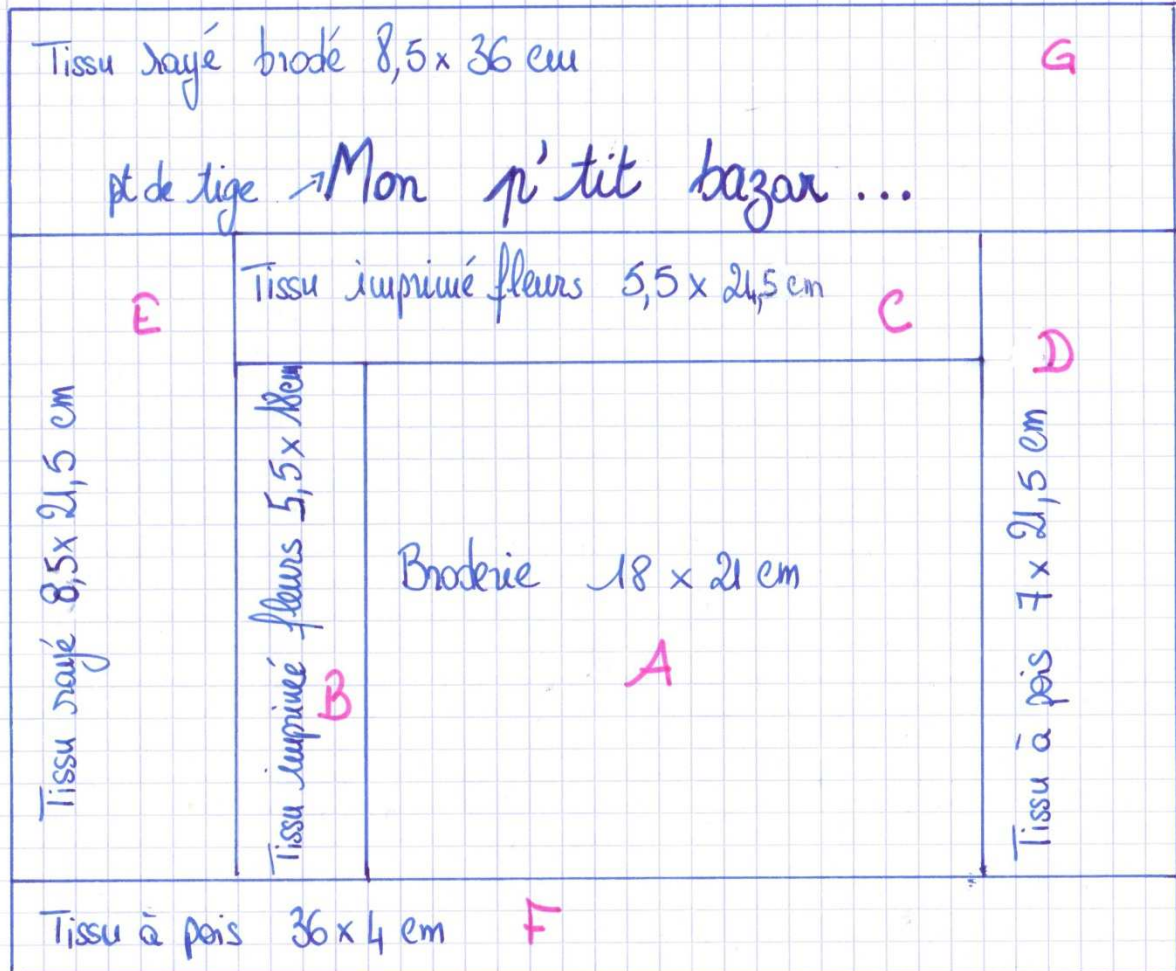 Tissu rayé brodé 8,5 x 36 cm
G
pt de tige → Mon p'tit bazar ...
Tissu imprimé fleurs 5,5 x 24,5 cm
C
E
D
Tissu rayé 8,5 x 21,5 cm
Tissu imprimé fleurs 5,5 x 18 cm
B
Broderie 18 x 21 cm
A
Tissu à pois 7 x 21,5 cm
Tissu à pois 36 x 4 cm
F